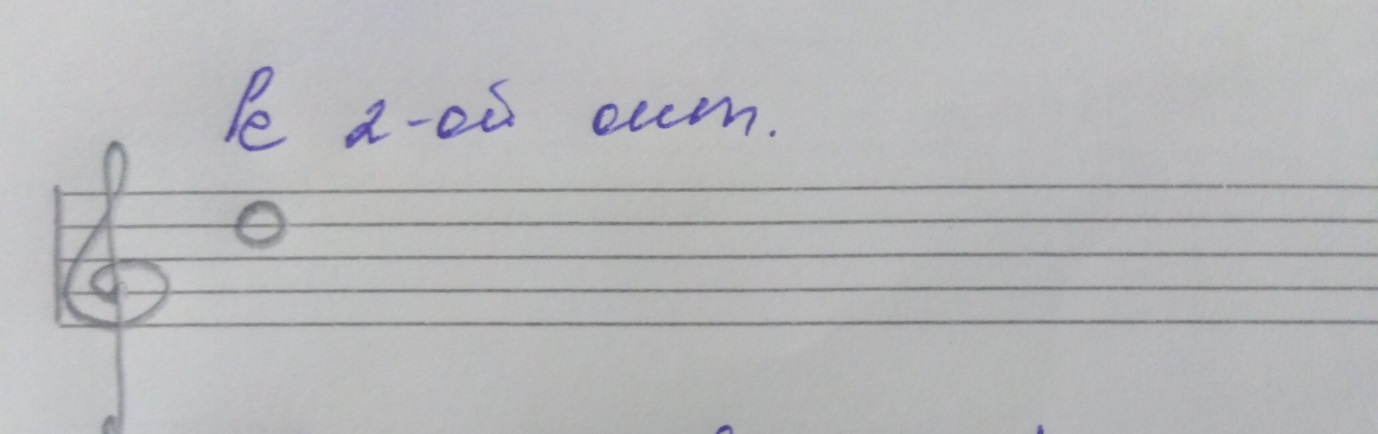 Ре 2-ой окт.